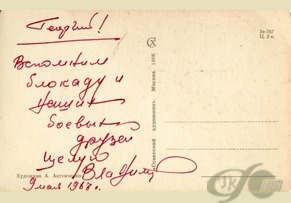 Георгий!
Вспомним
блокаду и
наших
боевых
друзей
Целую
Владимир
9 мая 1967 г.
Художник А. Антонченко
«Советский художник». Москва.
Зк-787
Ц. 3 к.